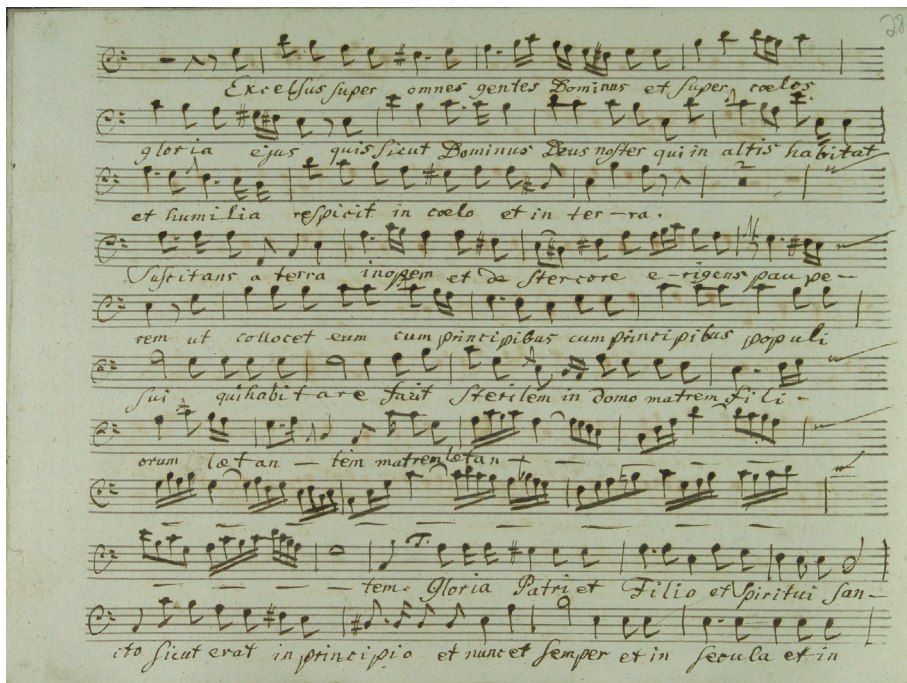 28
Excelsus super omnes gentes Dominus et super cœlos
gloria ejus quis sicut Dominus Deus noster qui in altis habitat
et humilia respicit in cœlo et in ter–ra.
Suscitans a terra inopem et de stercore e–rigens pau pe–
rem ut collocet eum cum principibus cum principibus populi
sui qui habitare facit sterilem in domo matrem fili–
orum lætan – tem matrem lætan – –
– – – tem Gloria Patri et Filio et Spiritui San–
cto sicut erat in principio et nunc et semper et in secula et in